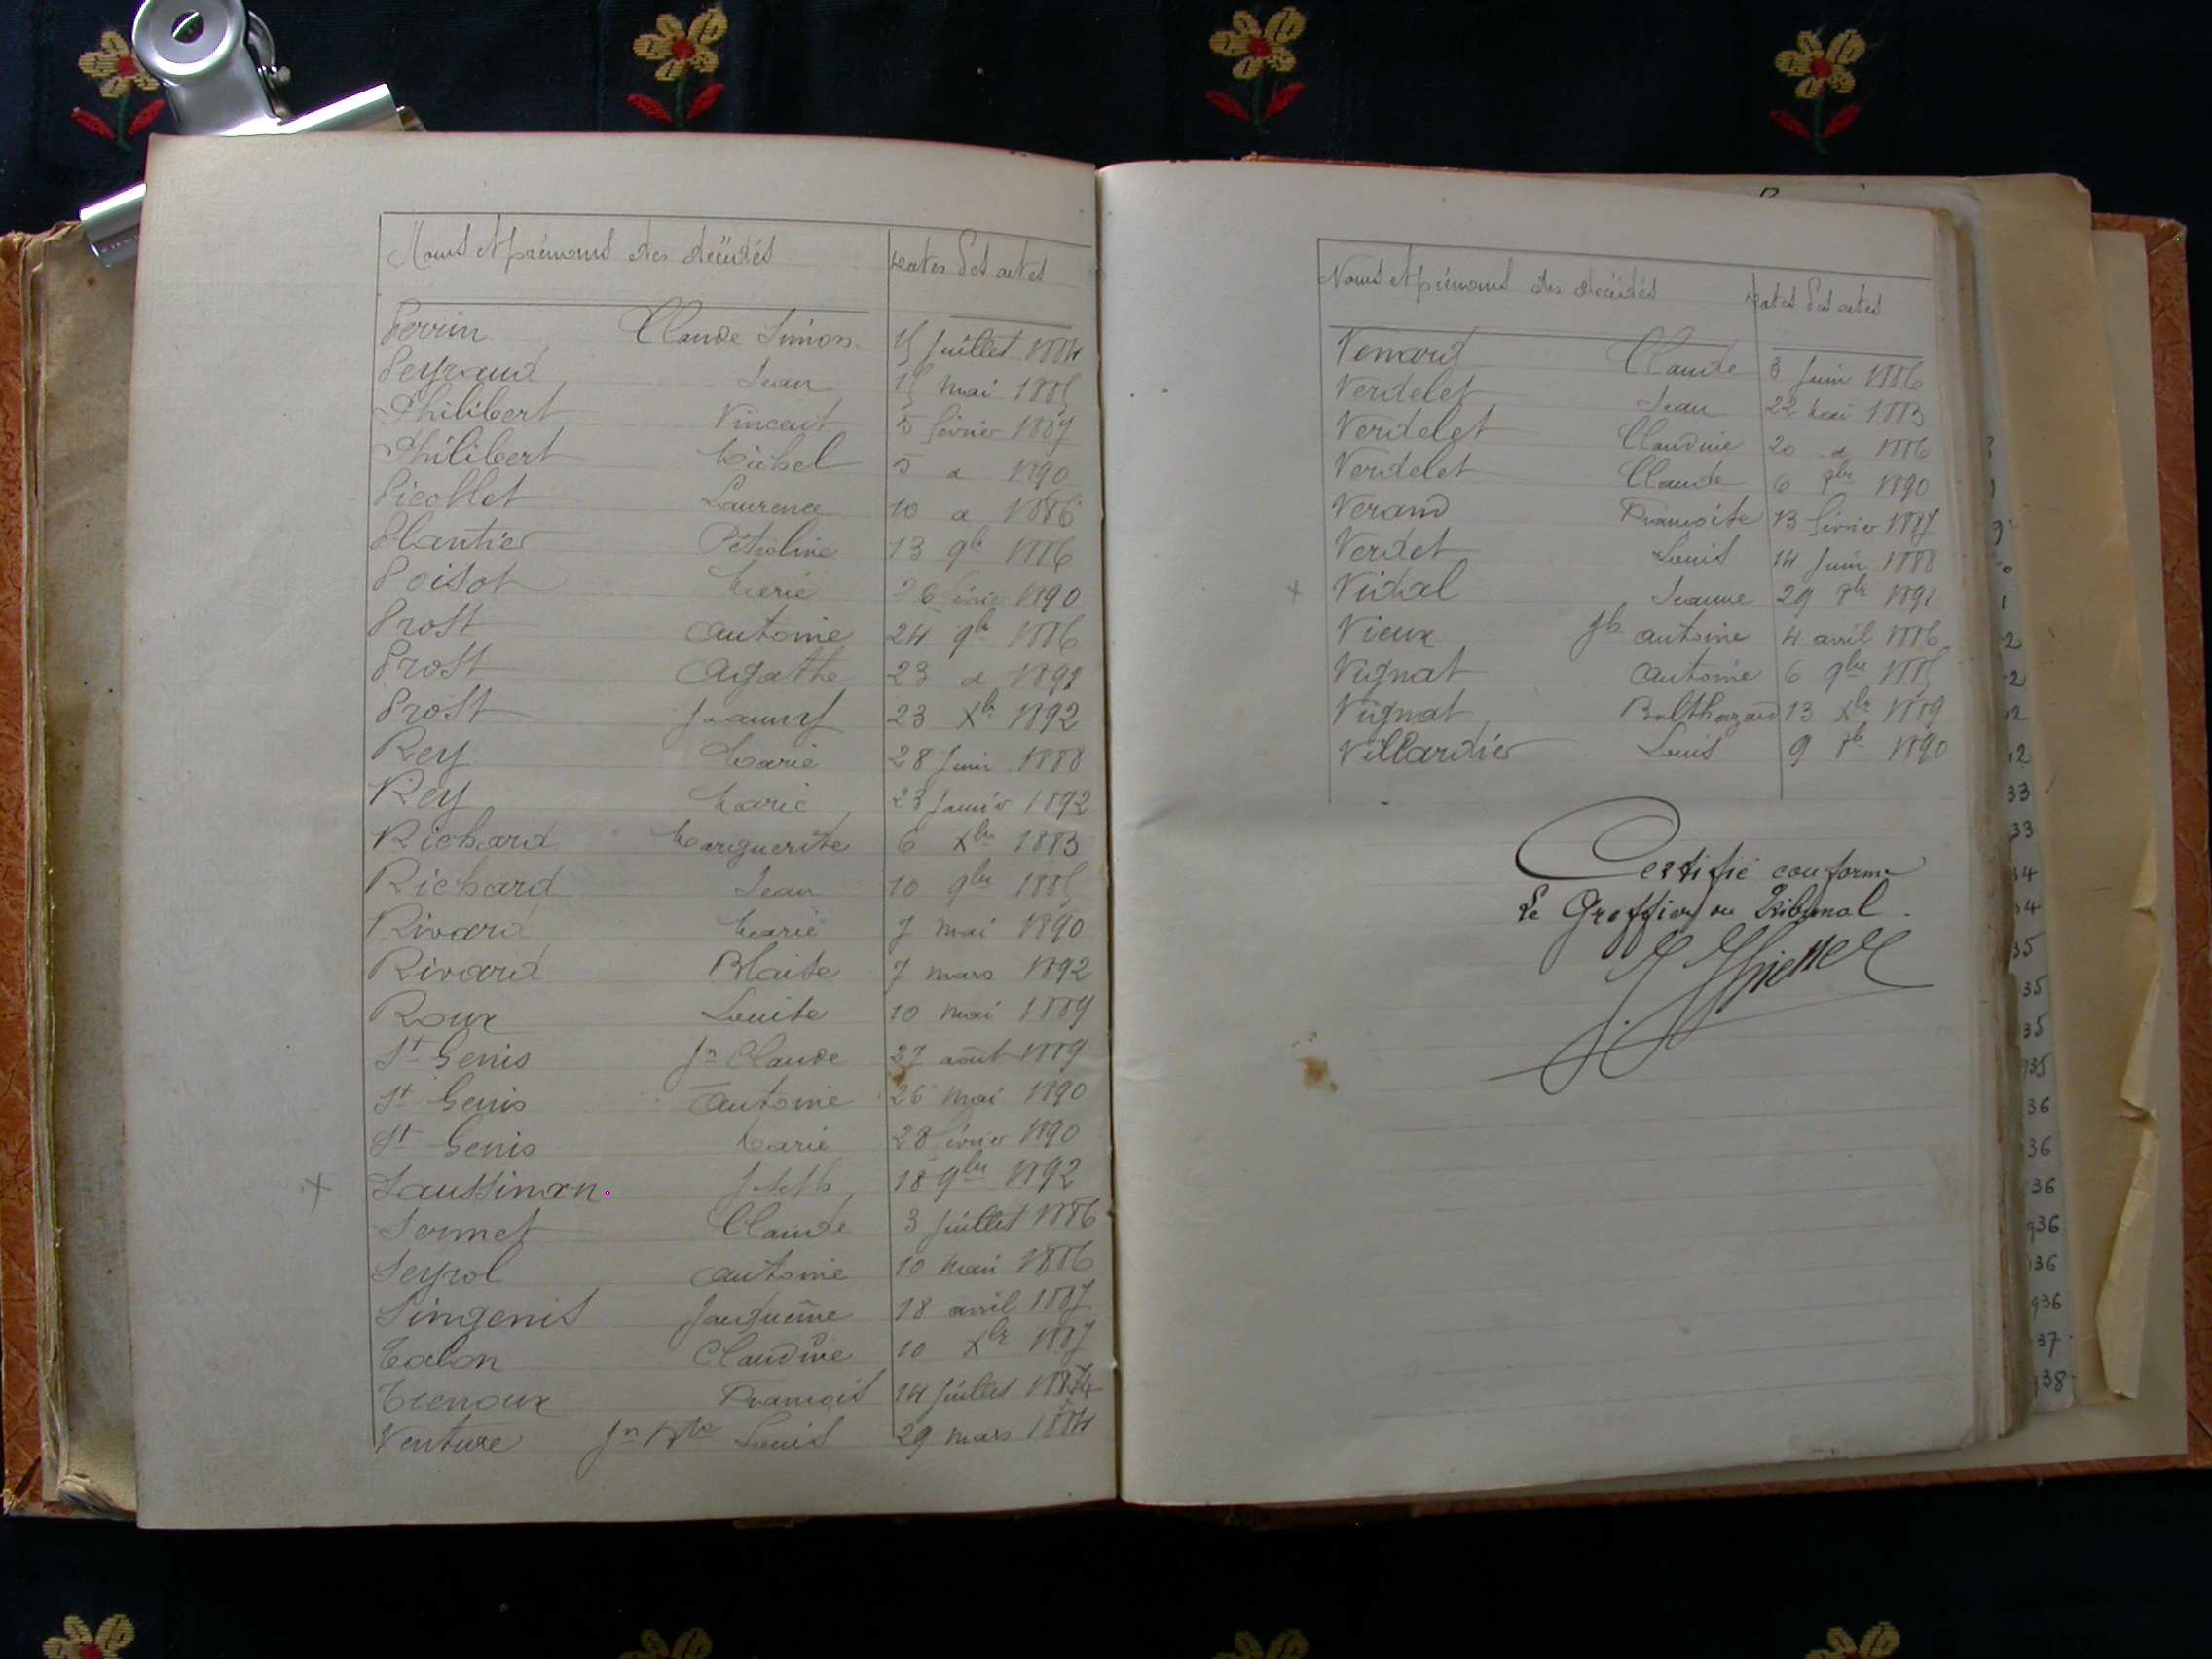 Noms et prénoms des décédés Dates des actes
Perrin Claude Simon 15 Juillet 1884
Peyraud Jean 15 mai 1885
Philibert Vincent 5 février 1887
Philibert Michel 5 d 1890
Picollet Laurence 10 d 1886
Plantier Pétroline 13 9bre 1886
Poisot Marie 26 février 1890
Prost Antoine 24 9bre 1886
Prost Agathe 23 d 1891
Prost 23 Xbre 1892
Rey Marie 28 Juin 1888
Rey Marie 23 Janvier 1892
Richard Marguerite 6 Xbre 1883
Richard Jean 10 9bre 1885
Rivard Marie 7 mai 1890
Rivard Blaise 7 mars 1892
Roux Louise 10 mai 1889
St Genis Jn Claude 27 août 1889
St Genis Antoine 26 mai 1890
St Genis Marie 28 février 1890
+ Saussinan Jseph 18 9bre 1892
Sermet Claude 3 Juillet 1886
Seyrol Antoine 10 mai 1886
Singenis Jacqueline 18 avril 1887
Talon Claudine 10 Xbre 1887
Trenoux François 14 Juillet
Venture Jn Bte Louis 29 mars 1884
Noms et prénoms des décédés Dates des actes
Venard Claude 3 Juin 1886
Verdelet Jean 22 mai 1883
Verdelet Claudine 20 d 1886
Verdelet Claude 6 7bre 1890
Verand Françoise 13 février 1887
Verdet Louis 14 Juin 1888
+ Vidal Jeanne 29 7bre 1891
Vieux Jh Antoine 4 avril 1886
Vignat Antoine 6 9bre 1885
Vignat Balthazard 13 Xbre 1889
Villardier Louis 9 1890
Certifié conforme
Le Greffier du Tribunal
33
33
34
34
35
35
35
935
36
36
36
936
936
936
937
938